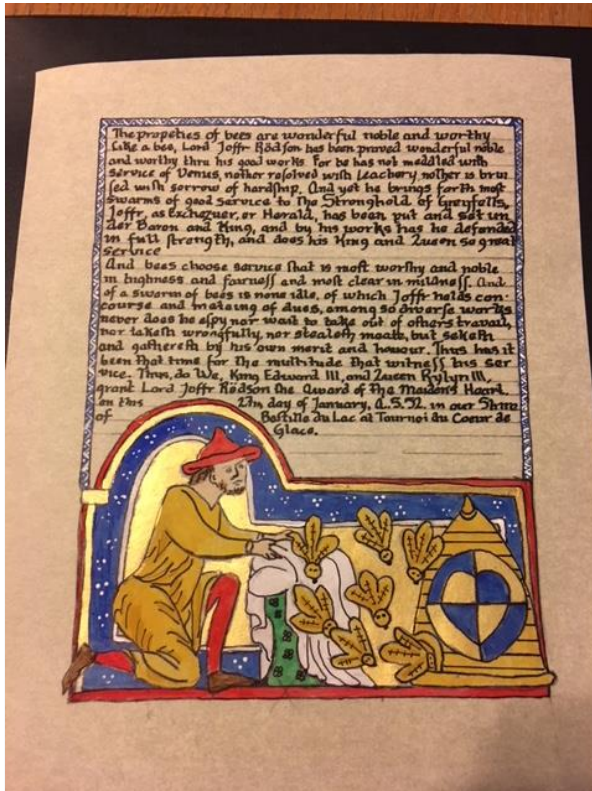 The propeties of bees are wonderful noble and worthy
Like a bee, Lord Joffr Rödson has been proved wonderful noble
and worthy thru his good works. For he has not meddled with
service of Venus, nother resolved with Leachery, nother is brui
sed with sorrow of hardship. And yet he brings forth most
swarms of good service to the Stronghold of Greyfells,
Joffr, as Exchequer, or Herald, has been put and set un
der Baron and King, and by his works has he defended
in full strength, and does his King and Queen so great
service
And bees choose service that is most worthy and noble
in highness and fairness and most clear in mildness. And
of a swarm of bees is none idle, of which Joffr holds con-
course and meteing of dues, among so diverse works
never does he espy nor wait to take out of others travail,
nor taketh wrongfully, nor stealeth meate, but seketh
and gathereth by his own merit and honour. Thus has it
been that time for the multitude that witness his ser
vice. Thus, do We, King Edward III, and Queen Rylyn III,
grant Lord Joffr Rödson the Award of the Maidens Heart
on this 27th day of January, A.S. 52. in our Shire
of Bastille du Lac at Tournoi du Coeur de
Glace.